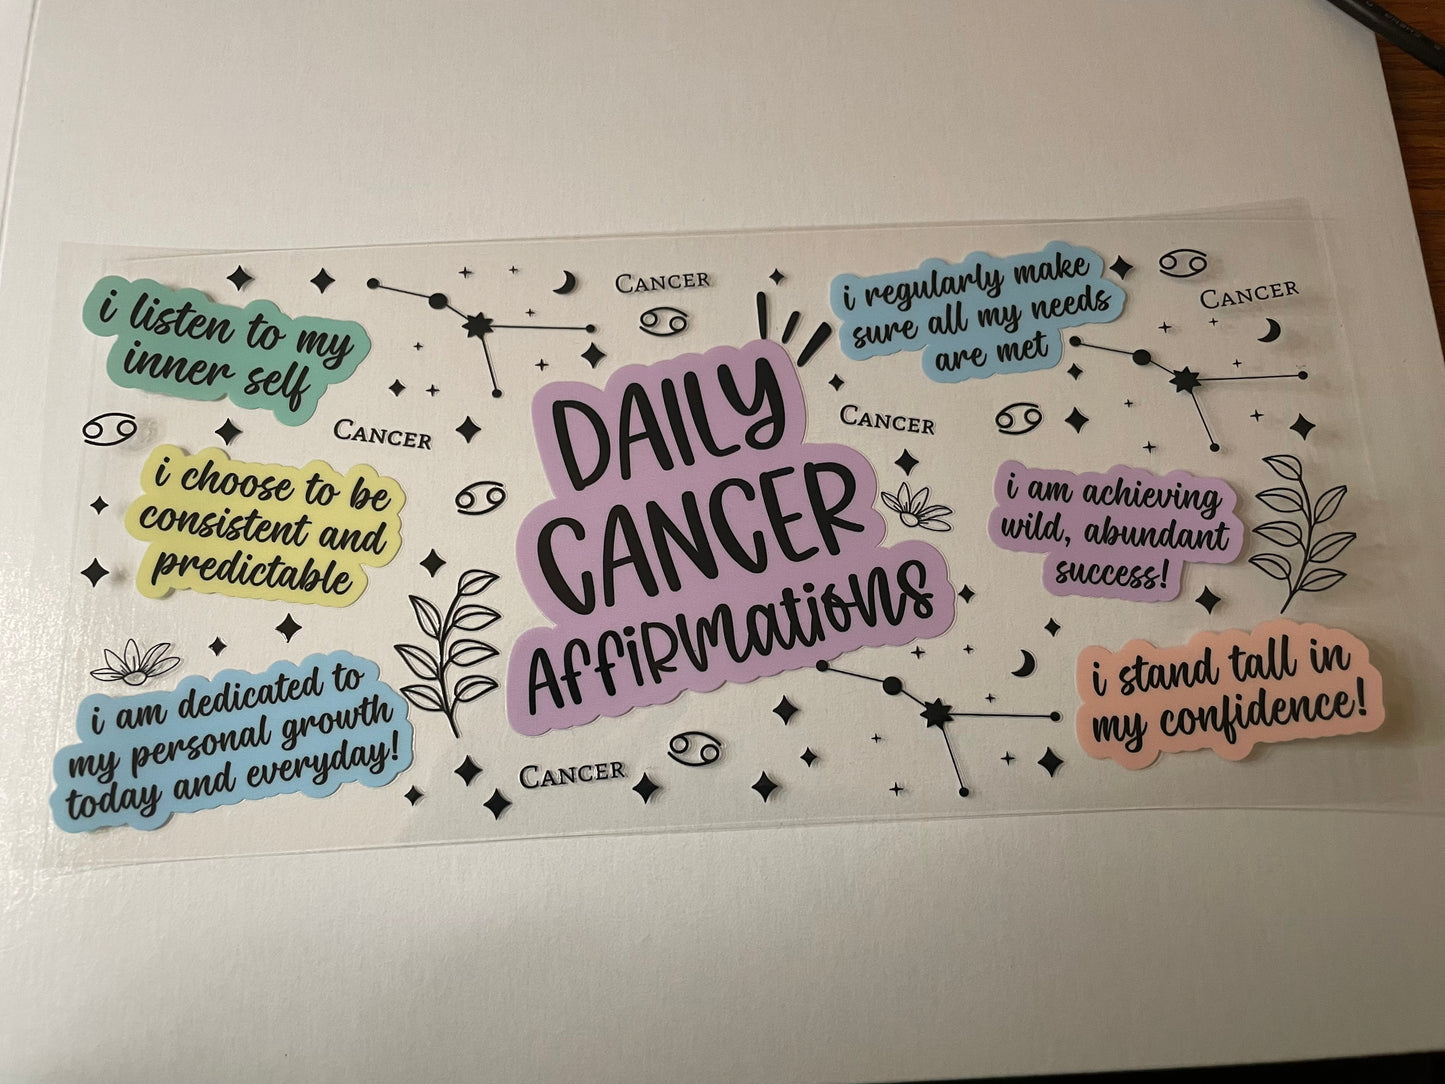 i listen to my
inner self
CANCER
CANCER
i choose to be
consistent and
predictable
i am dedicated to
my personal growth
today and everyday!
DAILY
CANCER
AffiRmations
CANCER
i regularly make
sure all my needs
are met
CANCER
CANCER
i am achieving
wild, abundant
success!
i stand tall in
my confidence!